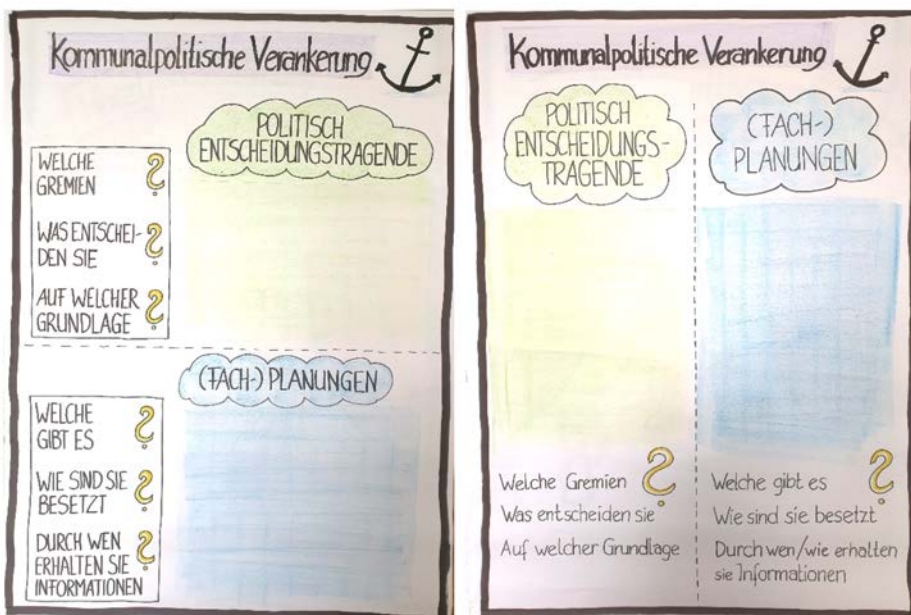 Kommunalpolitische Verankerung
POLITISCH
ENTSCHEIDUNGSTRAGENDE
WELCHE
GREMIEN ?
WAS ENTSCHEI-
DEN SIE ?
AUF WELCHER
GRUNDLAGE ?
(FACH-) PLANUNGEN
WELCHE
GIBT ES ?
WIE SIND SIE
BESETZT ?
DURCH WEN
ERHALTEN SIE
INFORMATIONEN ?
Kommunalpolitische Verankerung
POLITISCH
ENTSCHEIDUNGS-
TRAGENDE
Welche Gremien ?
Was entscheiden sie
Auf welcher Grundlage
(FACH-)
PLANUNGEN
Welche gibt es ?
Wie sind sie besetzt
Durch wen/wie erhalten
sie Informationen